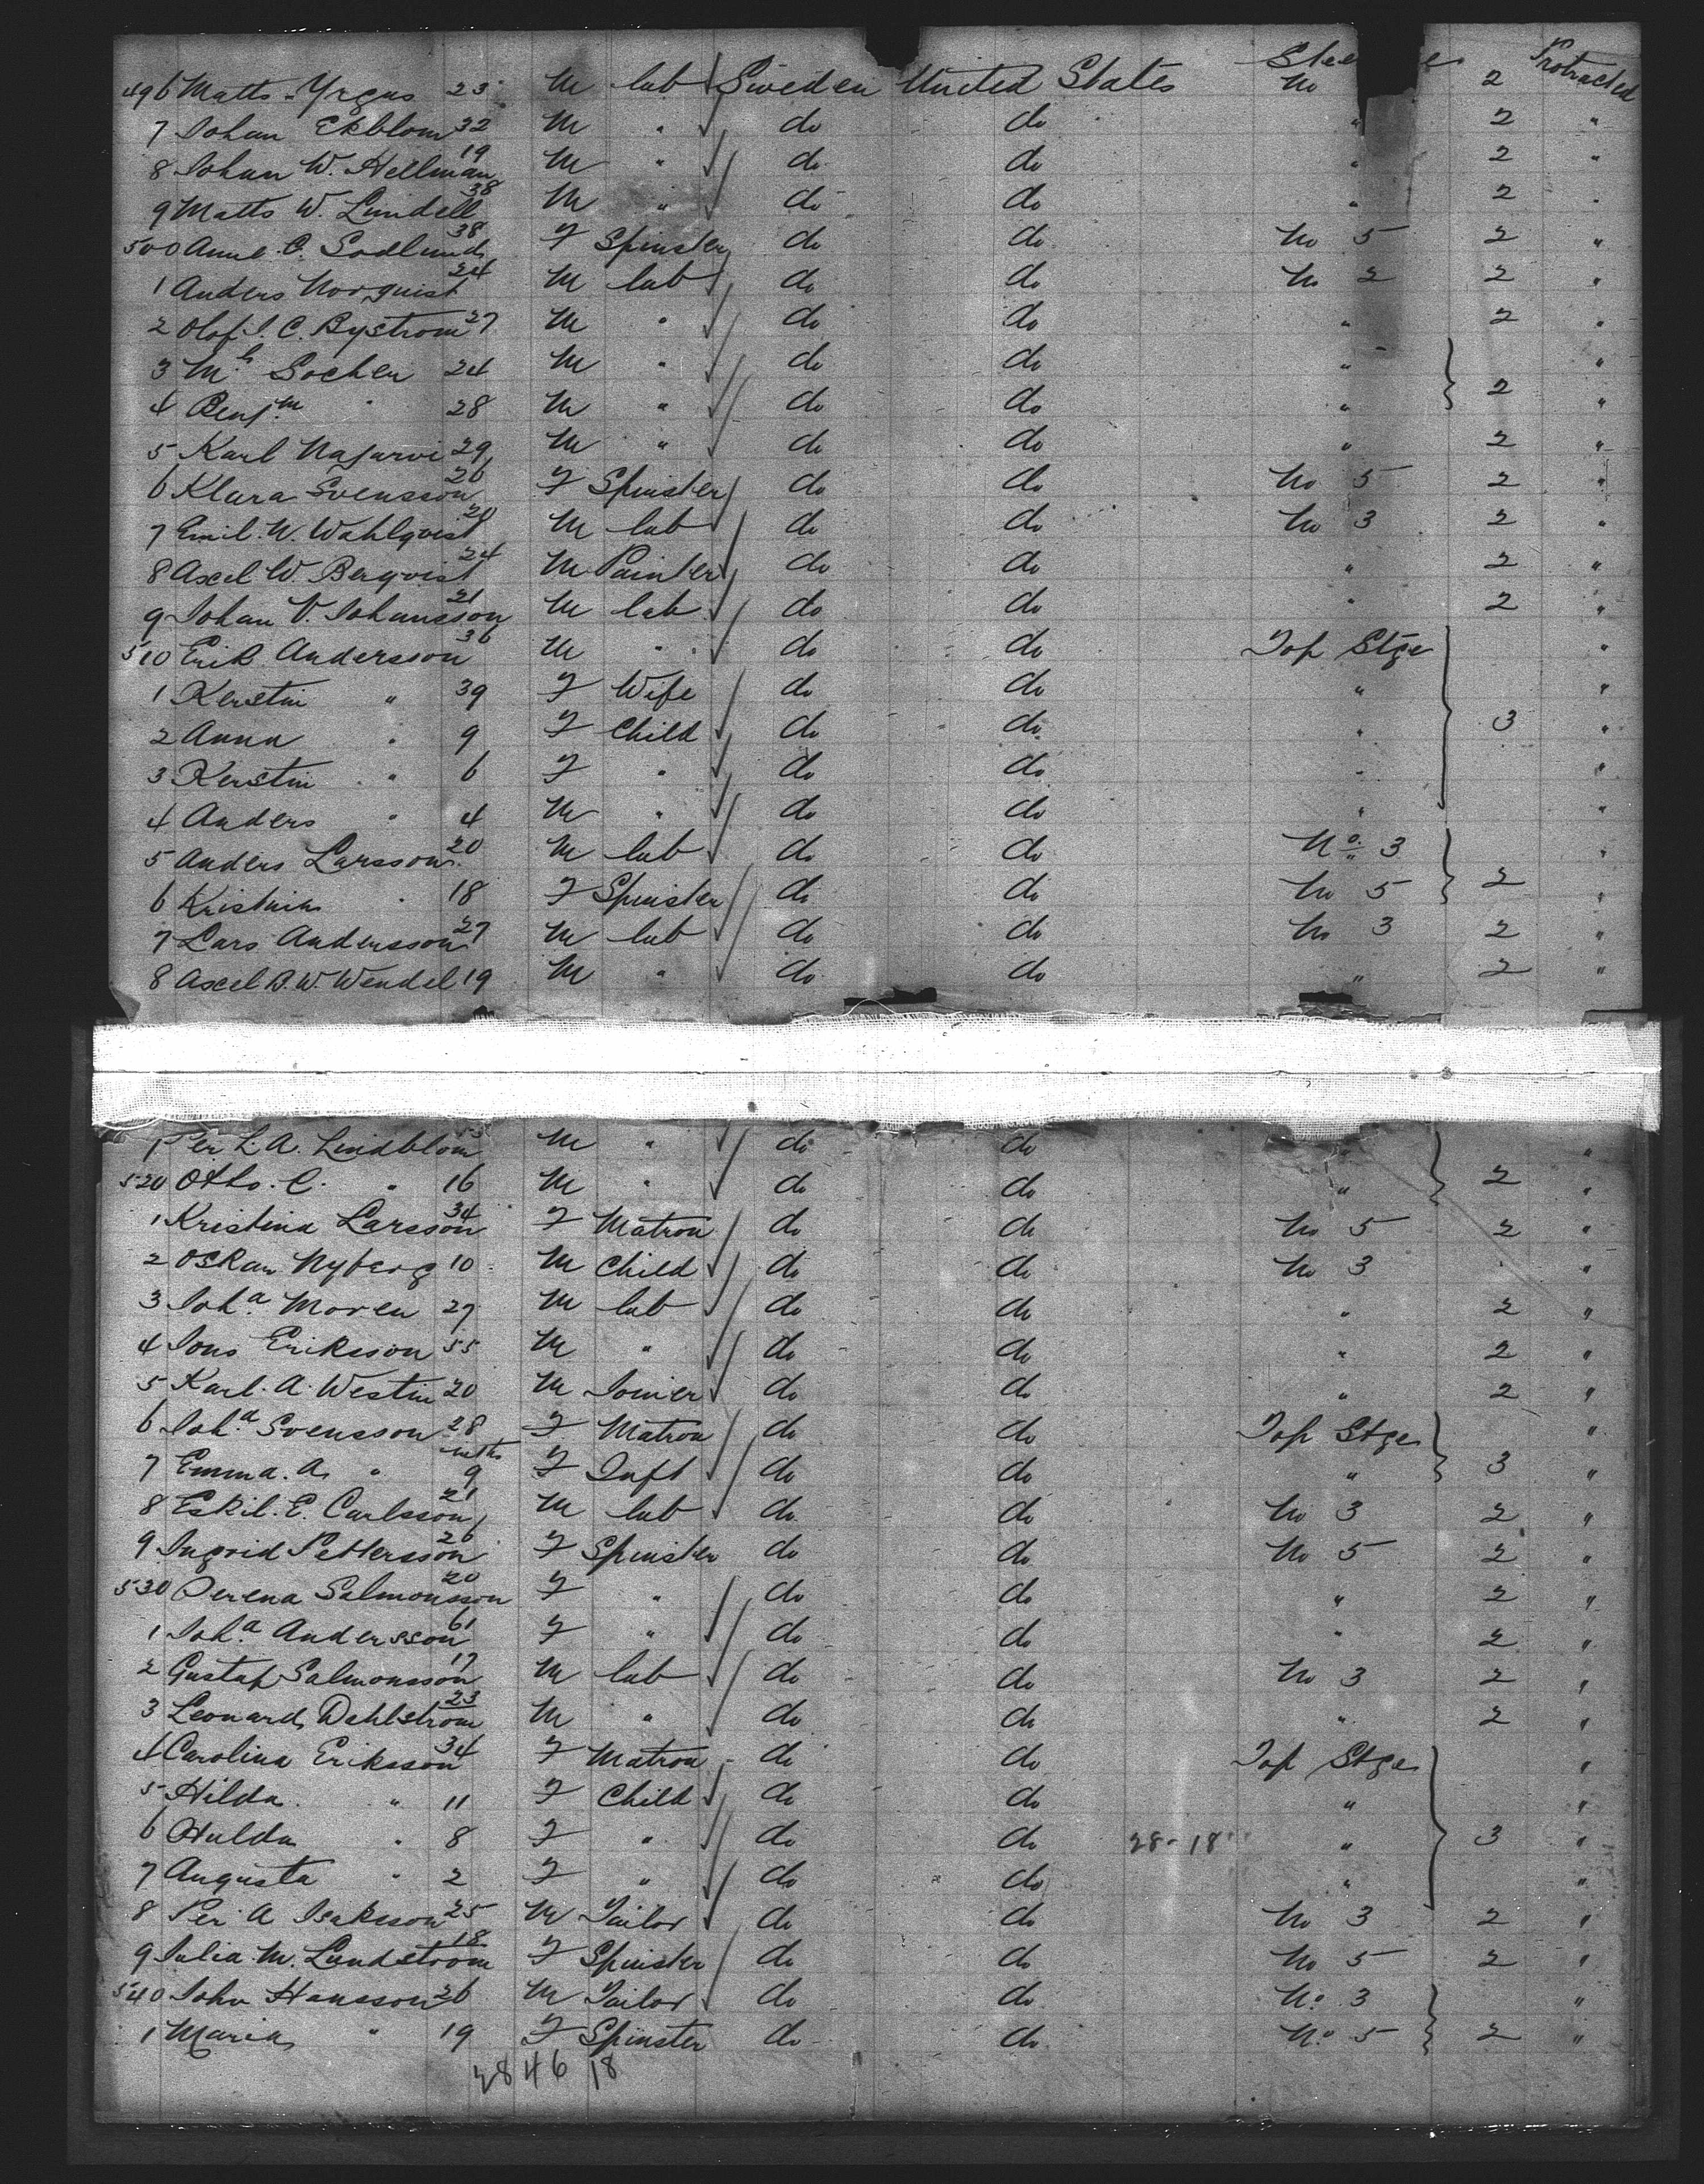 496 Matts Yrgus 23 M lab Sweden United States No 2 Protracted
7 Johan Ekblom 32 M " do do " 2 "
8 Johan W. Hellman 19 M " do do " 2 "
9 Matts W. Lindell 38 M " do do " 2 "
500 Anne C. Sodlund 38 F Spinster do do No 5 2 "
1 Anders Norquist 24 M lab do do No 2 2 "
2 Olof J. C. Bystrom 27 M " do do " 2 "
3 Mh Sochen 24 M " do do " "
4 Benjm " 28 M " do do " 2 "
5 Karl Najarvi 29 M " do do " 2 "
6 Klara Svensson 26 F Spinster do do No 5 2 "
7 Emil W. Wahlqvist 20 M lab do do No 3 2 "
8 Axel W. Berqvist 24 M Painter do do " 2 "
9 Johan V. Johansson 21 M lab do do " 2 "
510 Erik Andersson 36 M " do do Top Stge "
1 Kerstin " 39 F Wife do do " "
2 Anna " 9 F Child do do " 3 "
3 Kerstin " 6 F " do do " "
4 Anders " 4 M " do do " "
5 Anders Larsson 20 M lab do do No. 3 "
6 Kristina " 18 F Spinster do do No 5 2 "
7 Lars Andersson 27 M lab do do No 3 2 "
8 Axel B. W. Wendel 19 M " do do " 2 "
1 Per L. A. Lindblom M " do do " "
520 Otto. C. " 16 M " do do " 2 "
1 Kristina Larsson 34 F Matron do do No 5 2 "
2 Oskar Nyberg 10 M Child do do No 3 "
3 Joha Moren 27 M lab do do " 2 "
4 Jons Eriksson 55 M " do do " 2 "
5 Karl. A. Westin 20 M Joiner do do " 2 "
6 Joha Svensson 28 F Matron do do Top Stge "
7 Emma. A. " mths 9 F Inft do do " 3 "
8 Eskil. E. Carlsson 21 M lab do do No 3 2 "
9 Ingrid Pettersson 26 F Spinster do do No 5 2 "
530 Serena Salmonsson 20 F " do do " 2 "
1 Joha Andersson 61 F " do do " 2 "
2 Gustaf Salmonsson 17 M lab do do No 3 2 "
3 Leonard Dahlstrom 23 M " do do " 2 "
4 Carolina Eriksson 34 F Matron do do Top Stge "
5 Hilda " 11 F Child do do " "
6 Hulda " 8 F " do do 28-18 " 3 "
7 Augusta " 2 F " do do " "
8 Per A Isaksson 25 M Tailor do do No 3 2 "
9 Julia M. Lundstrom 18 F Spinster do do No 5 2 "
540 John Hansson 26 M Tailor do do No. 3 "
1 Maria " 19 F Spinster do do No 5 2 "
28 46 18